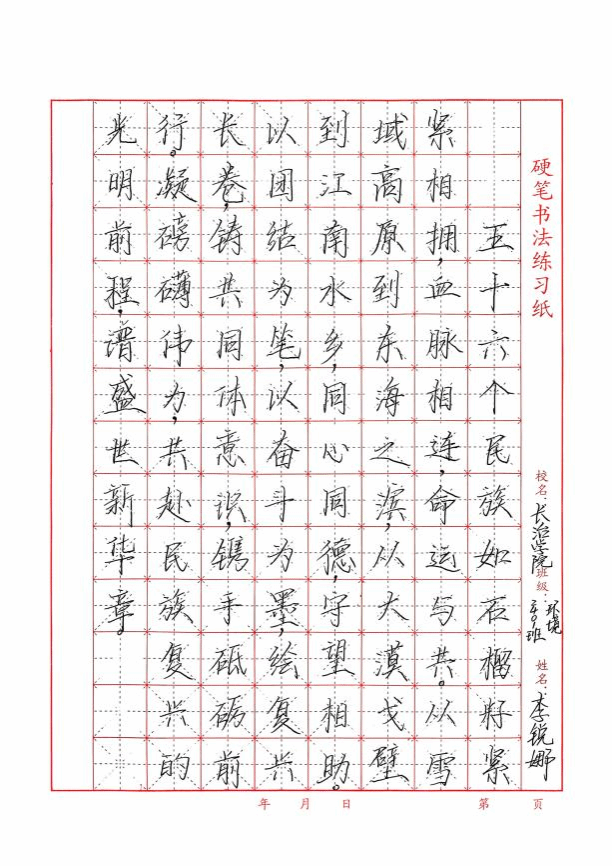 硬笔书法练习纸
校名：长治学院
班级：环境2401班
姓名：李锐娜
五十六个民族如石榴籽紧
紧相拥，血脉相连，命运与共。从雪
域高原到东海之滨，从大漠戈壁
到江南水乡，同心同德，守望相助。
以团结为笔，以奋斗为墨，绘复兴
长卷，铸共同体意识，镌手砥砺前
行。凝磅礴伟力，共赴民族复兴的
光明前程，谱盛世新华章。
年 月 日
第 页